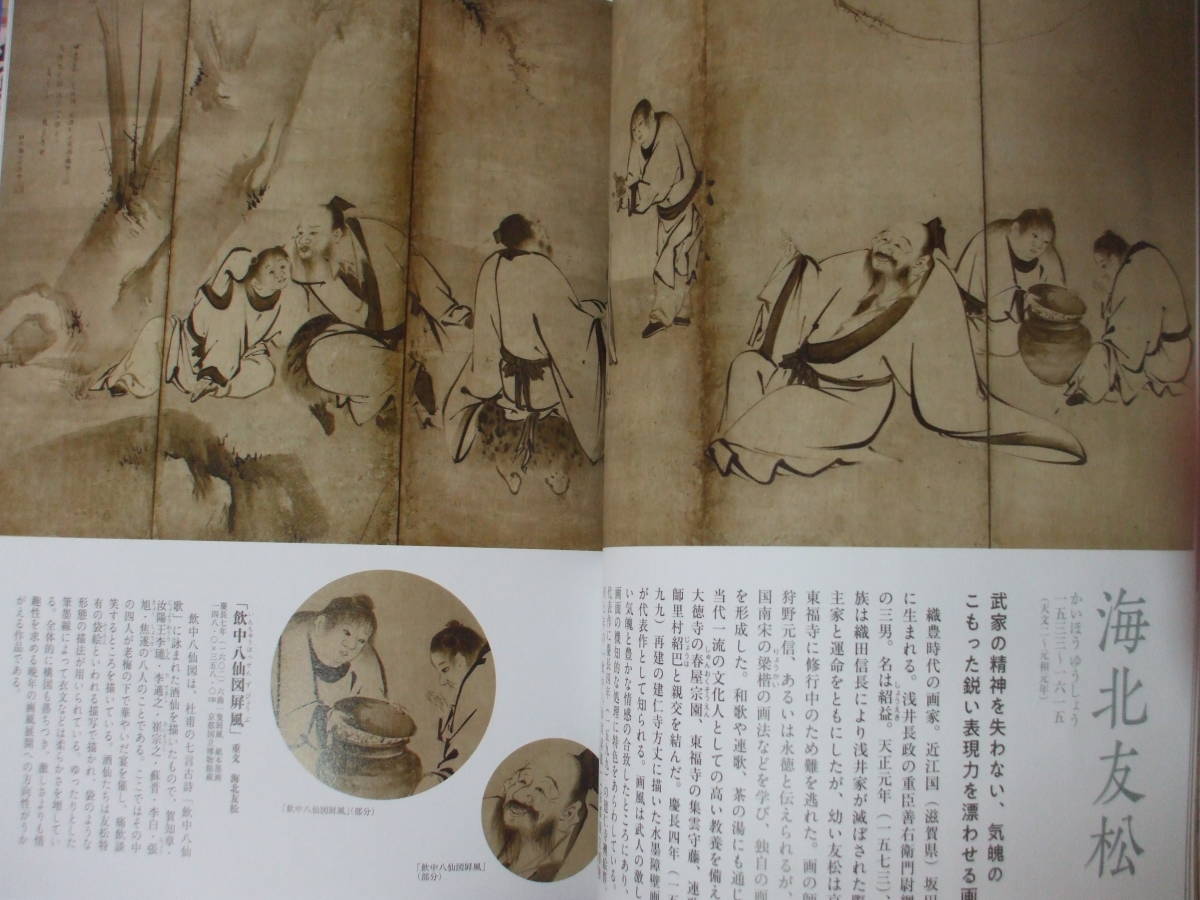 海北友松
かいほうゆうしょう
一五三三〜一六一五
(天文二〜元和元年)
武家の精神を失わない、気魄の
こもった鋭い表現力を漂わせる画
織豊時代の画家。近江国(滋賀県)坂田
に生まれる。浅井長政の重臣善右衛門尉綱
の三男。名は紹益。天正元年(一五七三)、
族は織田信長により浅井家が滅ぼされた際
主家と運命をともにしたが、幼い友松は京
東福寺に修行中のため難を逃れた。画の師
狩野元信、あるいは永徳と伝えられるが、
国南宋の梁楷の画法などを学び、独自の画
を形成した。和歌や連歌、茶の湯にも通じ
当代一流の文化人としての高い教養を備え
大徳寺の春屋宗園、東福寺の集雲守藤、連歌
師里村紹巴と親交を結んだ。慶長四年(一五
九九)再建の建仁寺方丈に描いた水墨障壁画
が代表作として知られる。画風は武人の激し
い気魄と豊かな情感の合致したところにあり、
画面の機知的な処理に特色をあらわしている。
「飲中八仙図屏風」(部分)
「飲中八仙図屏風」
(部分)
「飲中八仙図屏風」 重文 海北友松
慶長七年(一六〇二) 六曲一隻屏風 紙本墨画
京都国立博物館蔵
飲中八仙図は、杜甫の七言古詩「飲中八仙
歌」に詠まれた酒仙を描いたもので、賀知章・
汝陽王李璡・李適之・崔宗之・蘇晋・李白・張
旭・焦遂の八人のことである。ここではその中
の四人が老梅の下で華やいだ宴を催し、痛飲談
笑するところを描いている。酒仙たちは友松特
有の袋絵といわれる描写で描かれ、袋のような
形態の描法が用いられている。ゆったりとした
筆墨線によって衣文などは柔らかさを増してい
る。全体的に構図も落ちつき、激しさよりも情
趣性を求める晩年の画風展開への方向性がうか
がえる作品である。